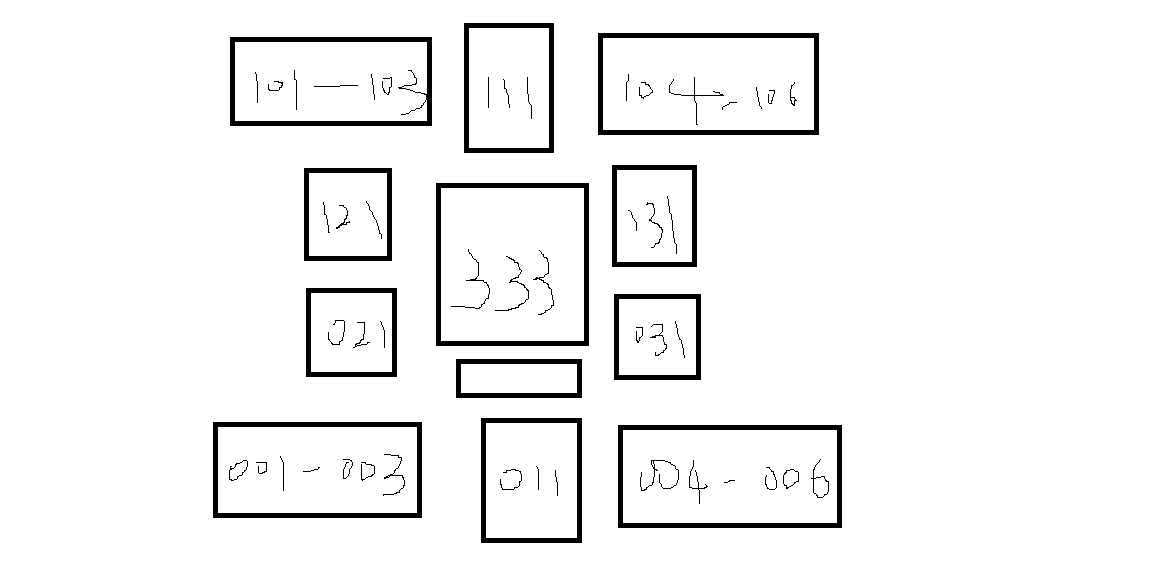 101 — 103
111
104 - 106
121
333
131
021
031
001 - 003
011
004 - 006